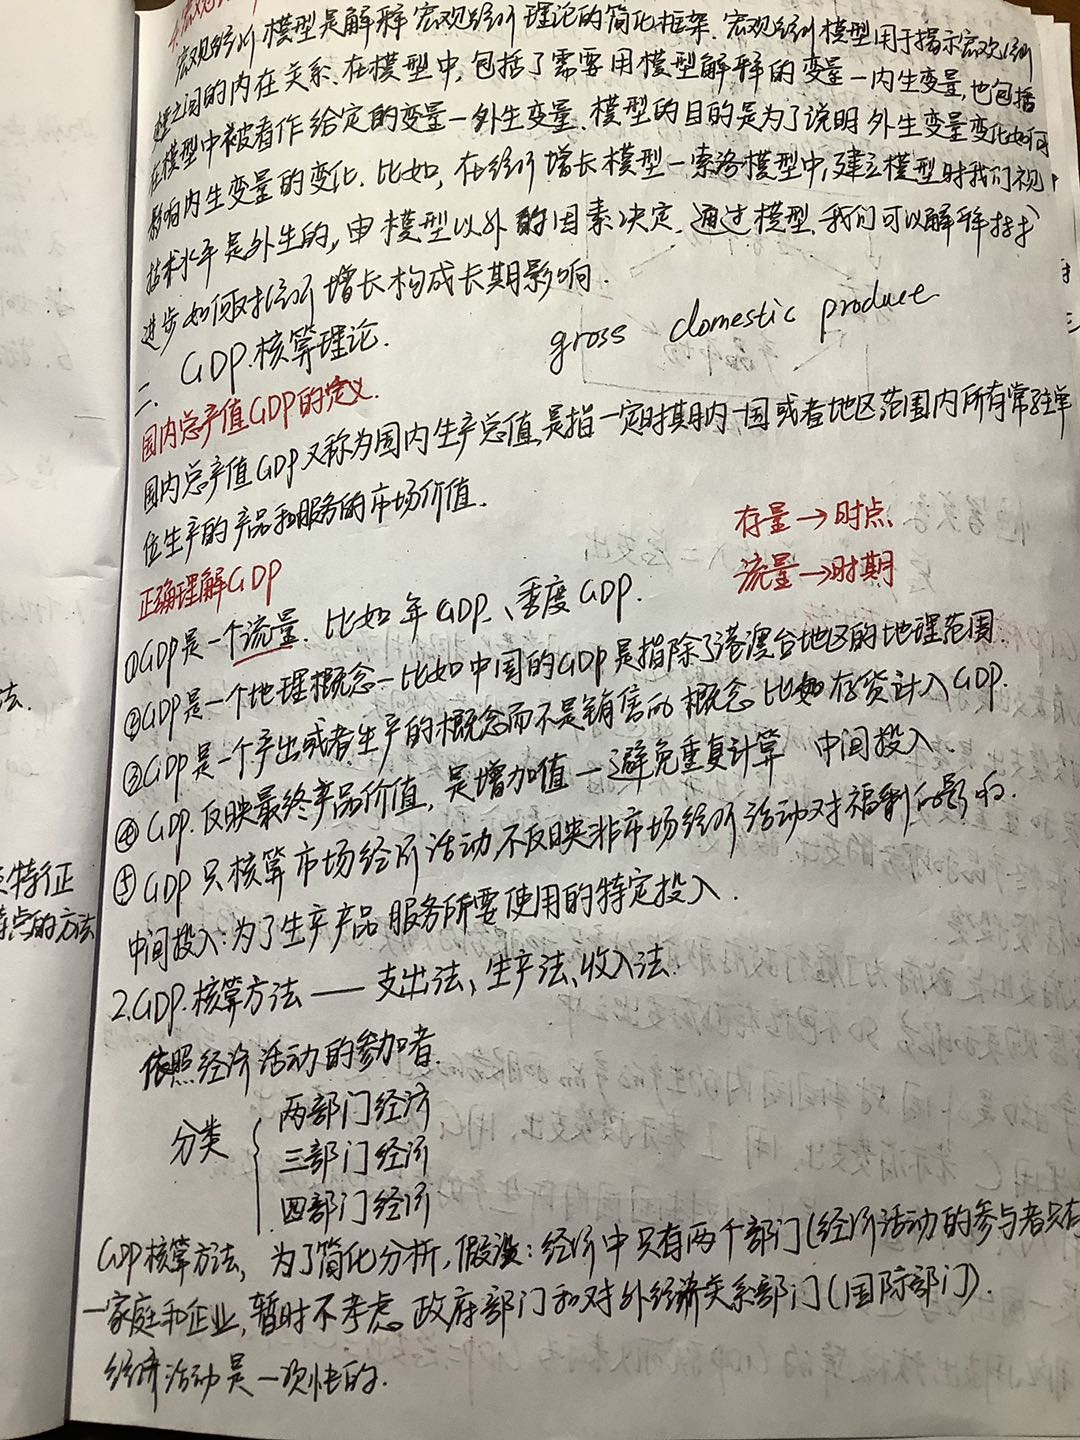 宏观经济模型是解释宏观经济理论的简化框架.宏观经济模型用于揭示宏观经济
变量之间的内在关系.在模型中,包括了需要用模型解释的变量—内生变量,也包括
在模型中被看作给定的变量—外生变量.模型的目的是为了说明外生变量变化如何
影响内生变量的变化.比如,在经济增长模型—索洛模型中,建立模型时我们视
技术水平是外生的,由模型以外的因素决定.通过模型,我们可以解释技术
进步如何对经济增长构成长期影响.
二、GDP核算理论.
gross domestic produce
国内总产值GDP的定义.
国内总产值GDP又称为国内生产总值,是指一定时期内一国或者地区范围内所有常驻单
位生产的产品和服务的市场价值.
存量→时点
流量→时期
正确理解GDP
①GDP是一个流量.比如年GDP、季度GDP.
②GDP是一个地理概念—比如中国的GDP是指除了港澳台地区的地理范围.
③GDP是一个产出或者生产的概念而不是销售的概念.比如存货计入GDP.
④GDP.反映最终产品价值,是增加值—避免重复计算 中间投入.
⑤GDP只核算市场经济活动,不反映非市场经济活动对福利的影响.
中间投入:为了生产产品服务所要使用的特定投入.
2.GDP.核算方法——支出法、生产法、收入法.
依照经济活动的参加者.
分类
两部门经济
三部门经济
四部门经济
GDP核算方法,为了简化分析,假设:经济中只有两个部门(经济活动的参与者只有
一家庭和企业,暂时不考虑政府部门和对外经济关系部门(国际部门).
经济活动是一次性的.
法.
特征
特点的方法